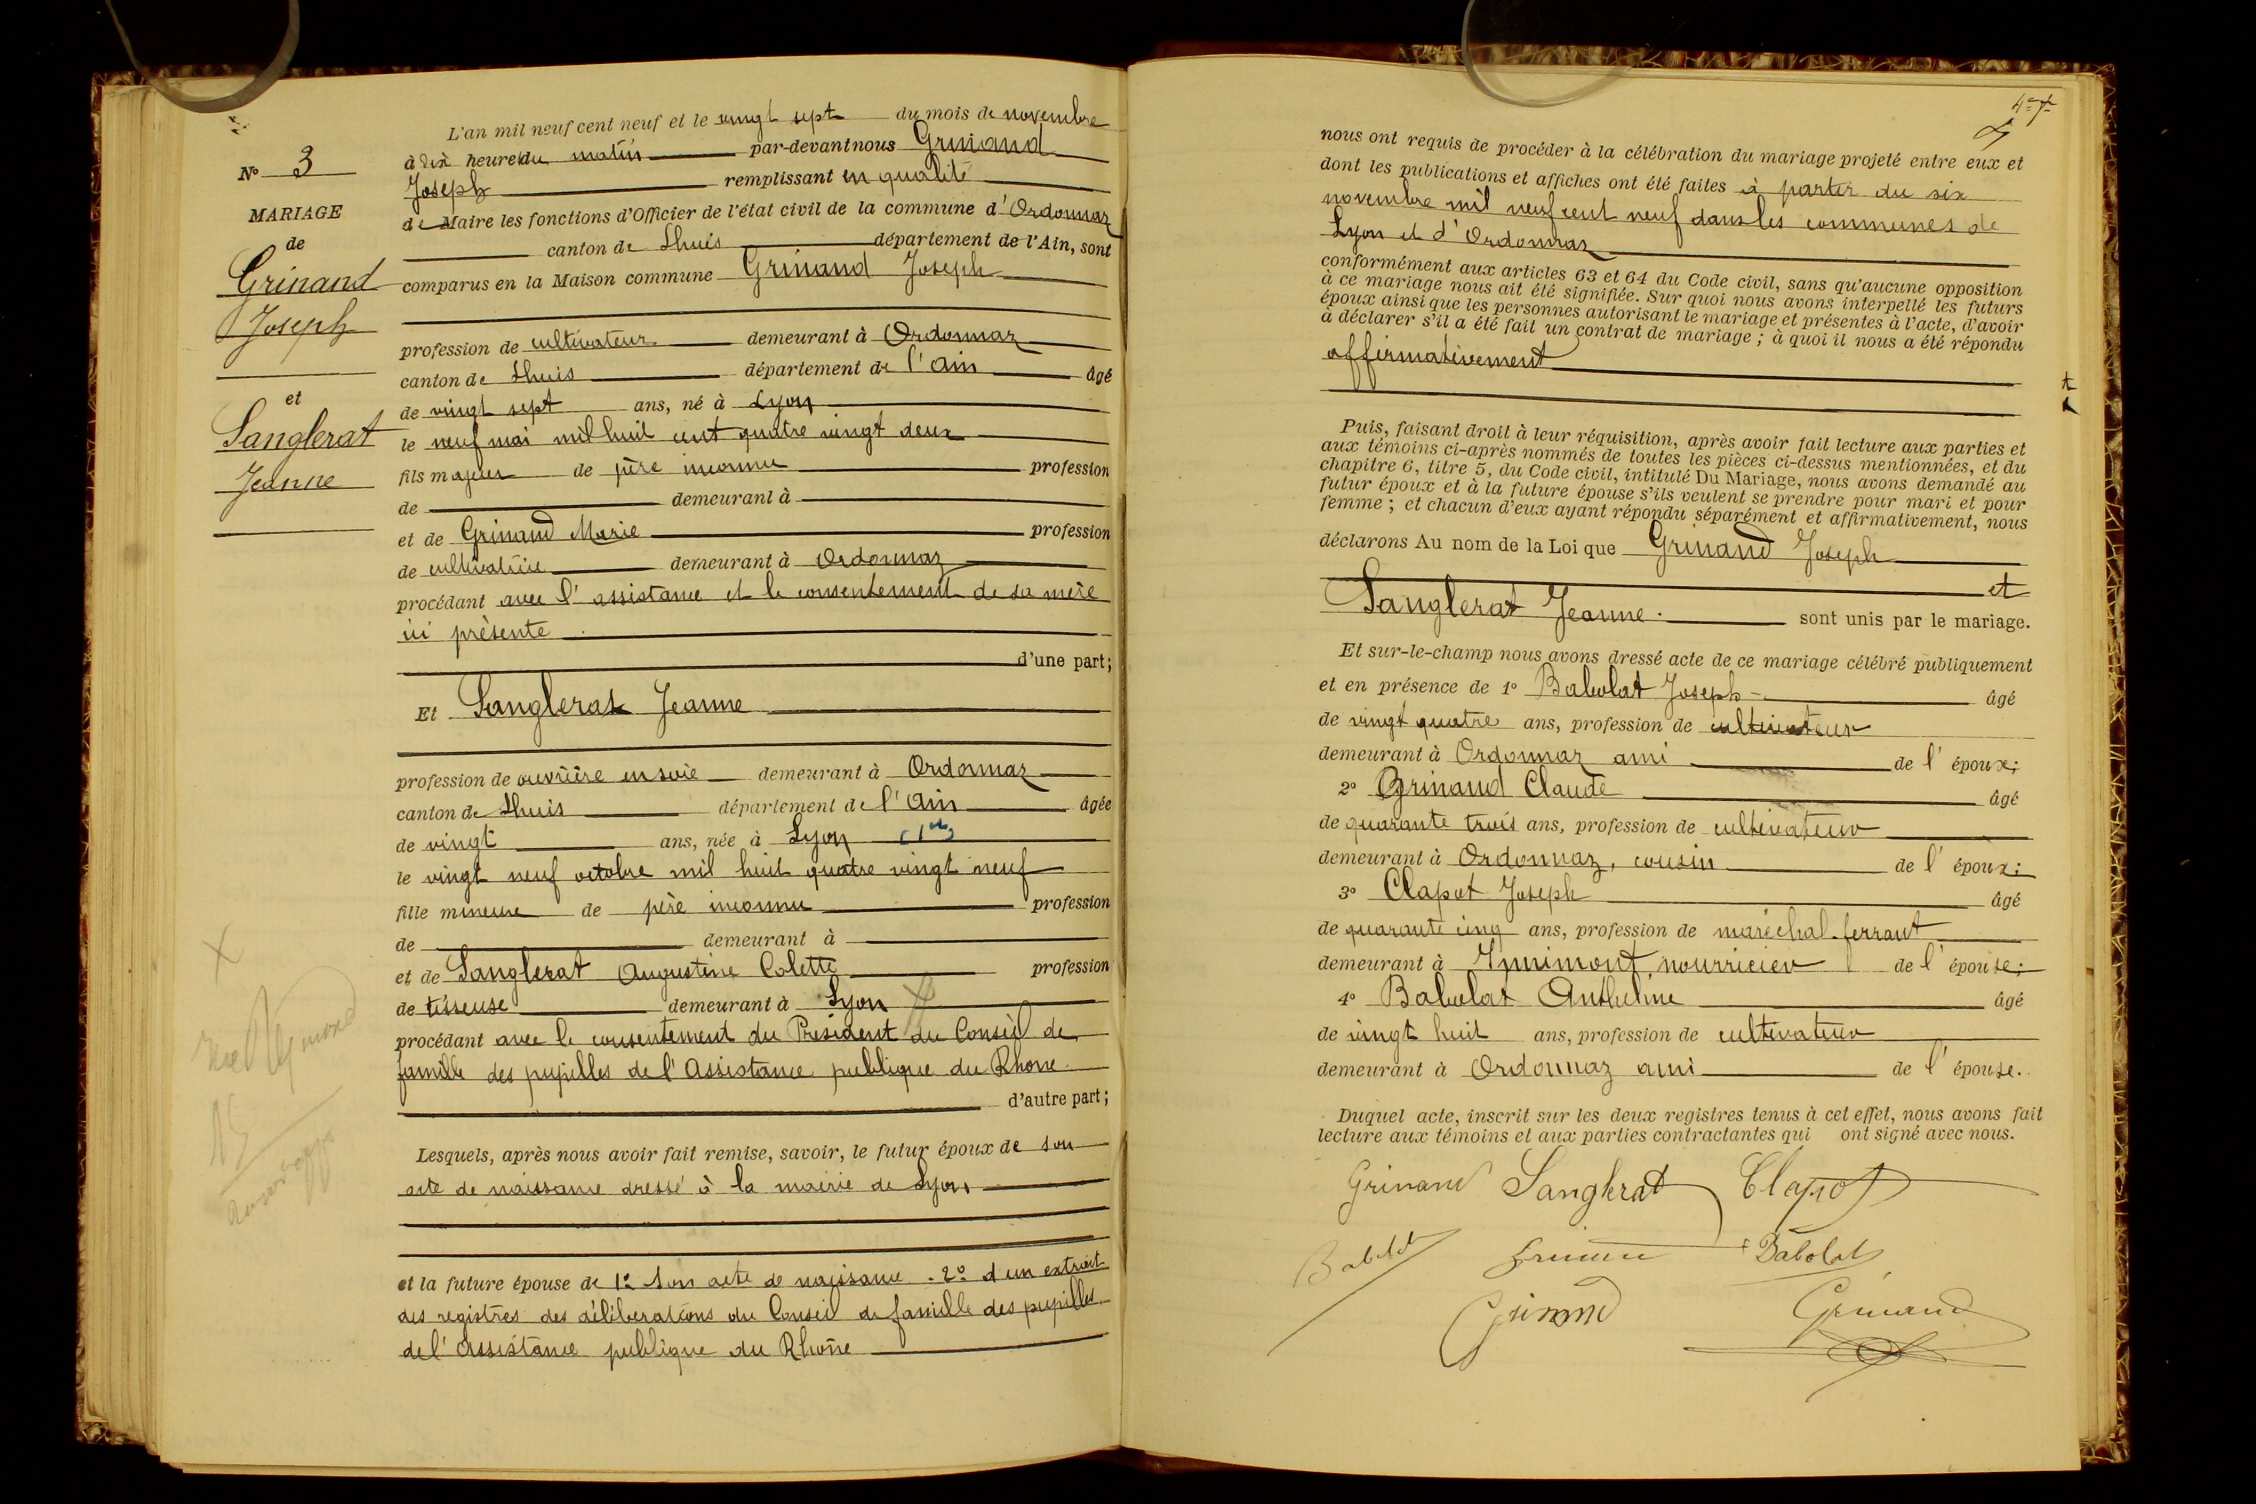 N° 3
MARIAGE
de
Grinand
Joseph
et
Sanglerat
Jeanne
L'an mil neuf cent neuf et le vingt sept du mois de novembre
à dix heure du matin par-devant nous Grinand
Joseph remplissant en qualité
de Maire les fonctions d'Officier de l'état civil de la commune d'Ordonnaz
canton de Lhuis département de l'Ain, sont
comparus en la Maison commune Grinand Joseph
profession de cultivateur demeurant à Ordonnaz
canton de Lhuis département de l'Ain âgé
de vingt sept ans, né à Lyon
le neuf mai mil huit cent quatre vingt deux
fils majeur de père inconnu profession
de demeurant à
et de Grinand Marie profession
de cultivatrice demeurant à Ordonnaz
procédant avec l'assistance et le consentement de sa mère
ici présente
d'une part;
Et Sanglerat Jeanne
profession de ouvrière en soie demeurant à Ordonnaz
canton de Lhuis département de l'Ain âgée
de vingt ans, née à Lyon
le vingt neuf octobre mil huit quatre vingt neuf
fille mineure de père inconnu profession
de demeurant à
et de Sanglerat Augustine Colette profession
de tisseuse demeurant à Lyon
procédant avec le consentement du Président du Conseil de
famille des pupilles de l'Assistance publique du Rhone
d'autre part;
Lesquels, après nous avoir fait remise, savoir, le futur époux de son
acte de naissance dressé à la mairie de Lyon
et la future épouse de 1° son acte de naissance. 2° d'un extrait
des registres des délibérations du Conseil de famille des pupilles
de l'Assistance publique du Rhône
47
nous ont requis de procéder à la célébration du mariage projeté entre eux et
dont les publications et affiches ont été faites à partir du six
novembre mil neuf cent neuf dans les communes de
Lyon et d'Ordonnaz
conformément aux articles 63 et 64 du Code civil, sans qu'aucune opposition
à ce mariage nous ait été signifiée. Sur quoi nous avons interpellé les futurs
époux ainsi que les personnes autorisant le mariage et présentes à l'acte, d'avoir
à déclarer s'il a été fait un contrat de mariage; à quoi il nous a été répondu
affirmativement
Puis, faisant droit à leur réquisition, après avoir fait lecture aux parties et
aux témoins ci-après nommés de toutes les pièces ci-dessus mentionnées, et du
chapitre 6, titre 5, du Code civil, intitulé Du Mariage, nous avons demandé au
futur époux et à la future épouse s'ils veulent se prendre pour mari et pour
femme; et chacun d'eux ayant répondu séparément et affirmativement, nous
déclarons Au nom de la Loi que Grinand Joseph
et
Sanglerat Jeanne sont unis par le mariage.
Et sur-le-champ nous avons dressé acte de ce mariage célébré publiquement
et en présence de 1° Babolat Joseph âgé
de vingt quatre ans, profession de cultivateur
demeurant à Ordonnaz ami de l'époux;
2° Grinand Claude âgé
de quarante trois ans, profession de cultivateur
demeurant à Ordonnaz, cousin de l'époux;
3° Clapot Joseph âgé
de quarante cinq ans, profession de maréchal-ferrant
demeurant à Innimont, nourricier de l'épouse;
4° Babolat Anthelme âgé
de vingt huit ans, profession de cultivateur
demeurant à Ordonnaz ami de l'épouse.
Duquel acte, inscrit sur les deux registres tenus à cet effet, nous avons fait
lecture aux témoins et aux parties contractantes qui ont signé avec nous.
Grinand Sanglerat Clapot
Babolat Babolat
Grinand Grinand